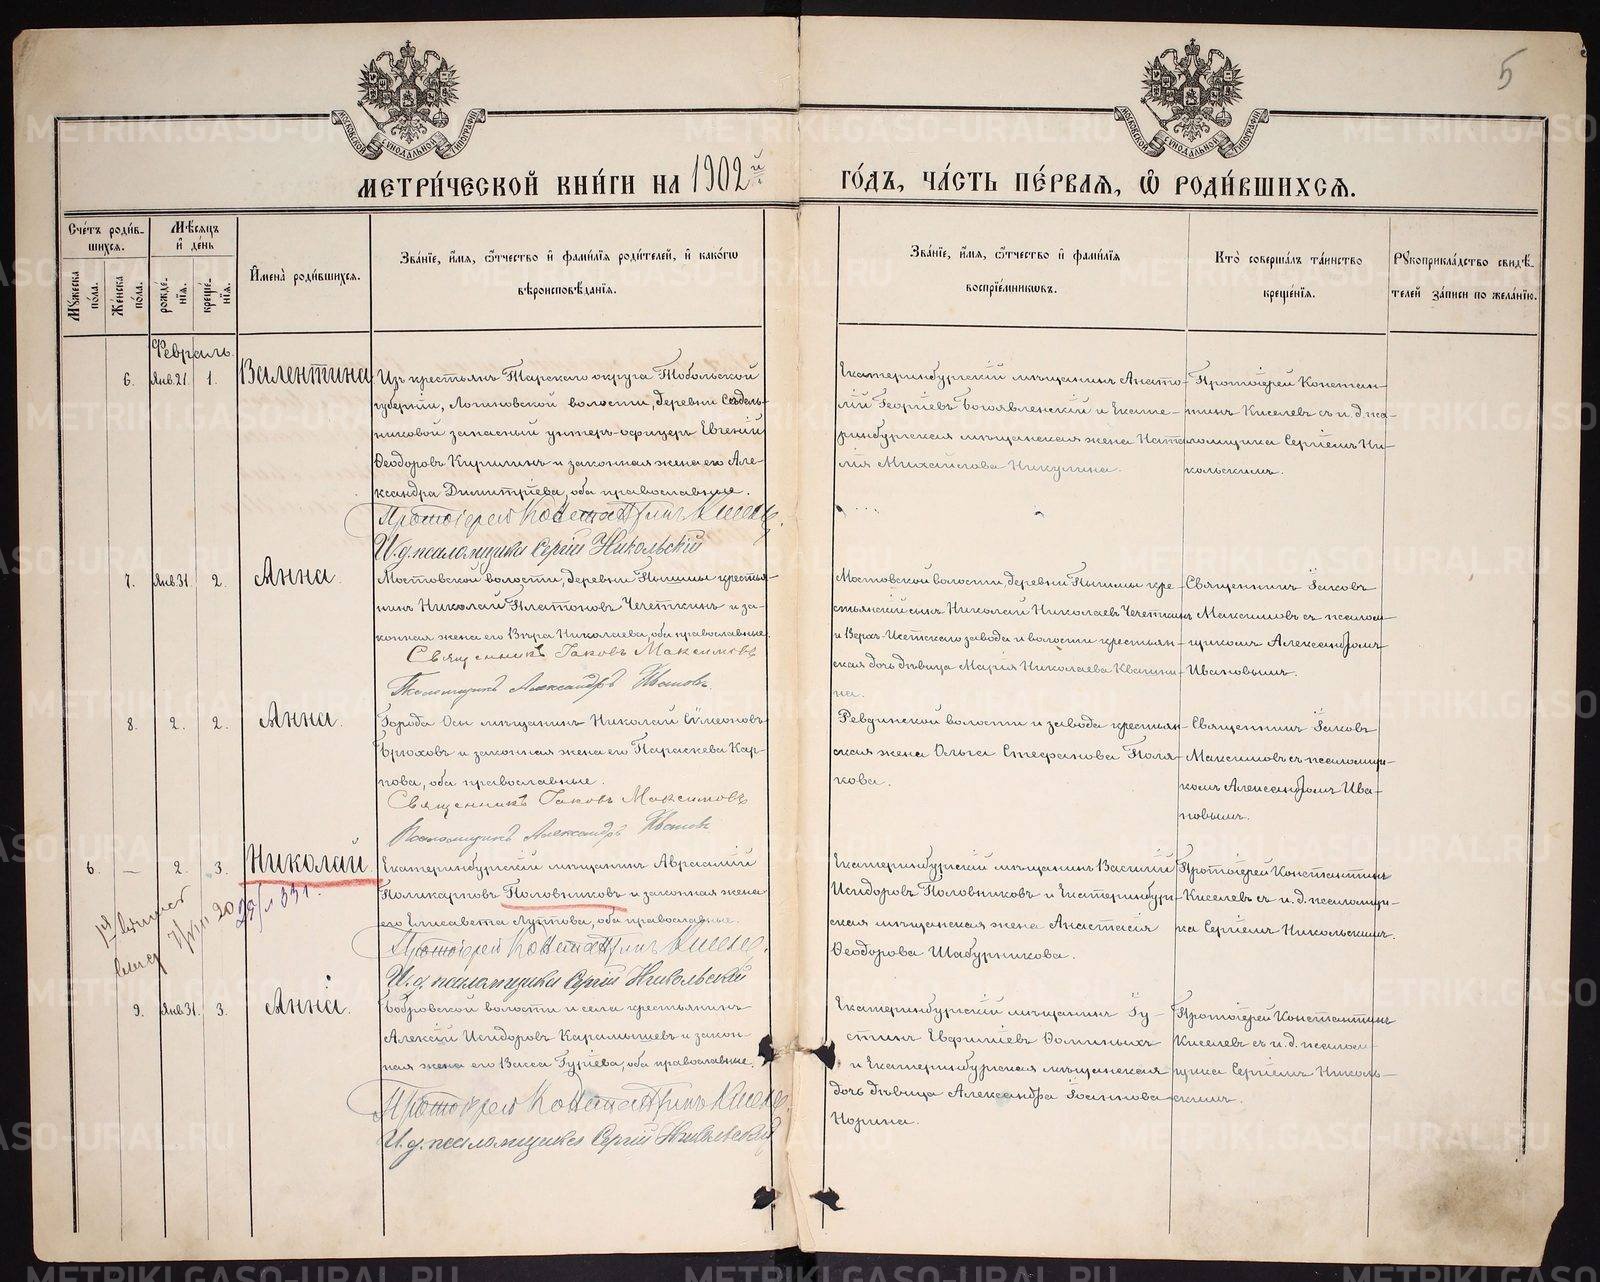 5
МОСКОВСКОЙ СѴНОДАЛЬНОЙ ТИПОГРАФІИ
МОСКОВСКОЙ СѴНОДАЛЬНОЙ ТИПОГРАФІИ
МЕТРИ́ЧЕСКОЙ КНИ́ГИ НА 1902й ГО́ДЪ, ЧА́СТЬ ПЕ́РВАЯ, Ѡ РОДИ́ВШИХСЯ.
Сче́тъ роди́в-
шихся.
Мѣ́сяцъ
и҆ де́нь
Мꙋжеска
по́ла.
Же́нска
по́ла.
рожде́-
нїя.
креще́-
нїя.
И҆мена̀ роди́вшихся.
Зва́нїе, и҆́мя, ѻ҆́тчество и҆ фами́лїя роди́телей, и҆ како́гѡ
вѣроисповѣ́данїя.
Зва́нїе, и҆́мя, ѻ҆́тчество и҆ фами́лїя
воспрїе́мникѡвъ.
Кто̀ соверша́лъ та́инство
креще́нїя.
Рꙋкоприкла́дство свидѣ́-
телей за́писи по жела́нїю.
Февраль.
6. Янв. 21. 1. Валентина
Изъ крестьянъ Тарскаго округа Тобольской
губерніи, Логиновской волости, деревни Сѣдель-
никовой запасный унтеръ-офицеръ Евгеній
Ѳеодоровъ Кирилинъ и законная жена его Але-
ксандра Димитріева, оба православные.
Протоіерей Константинъ Киселевъ.
И. д. псаломщика Сергій Никольскій
Екатеринбургскій мѣщанинъ Анато-
лій Георгіевъ Богоявленскій и Екате-
ринбургская мѣщанская жена Ната-
лія Михайлова Никулина.
Протоіерей Констан-
тинъ Киселевъ съ и. д. пса-
ломщика Сергіемъ Ни-
кольскимъ.
7. Янв. 31. 2. Анна.
Мостовской волости, деревни Пышмы крестья-
нинъ Николай Платоновъ Чечеткинъ и за-
конная жена его Вѣра Николаева, оба православные.
Священникъ Іаковъ Максимовъ
Псаломщикъ Александръ Ивановъ.
Мостовской волости, деревни Пышмы кре-
стьянскій сынъ Николай Николаевъ Чечеткинъ
и Верхъ-Исетскаго завода и волости крестьян-
ская дочь дѣвица Марія Николаева Квашни-
на.
Священникъ Іаковъ
Максимовъ съ псалом-
щикомъ Александромъ
Ивановымъ.
8. 2. 2. Анна.
Города Осы мѣщанинъ Николай Сѵмеоновъ
Брюховъ и законная жена его Параскева Кар-
пова, оба православные.
Священникъ Іаковъ Максимовъ
Псаломщикъ Александръ Ивановъ
Ревдинской волости и завода крестьян-
ская жена Ольга Стефанова Поля-
кова.
Священникъ Іаковъ
Максимовъ съ псаломщи-
комъ Александромъ Ива-
новымъ.
6. — 2. 3. Николай
Екатеринбургскій мѣщанинъ Авраамій
Поликарповъ Половниковъ и законная жена
его Елисавета Луппова, оба православные.
Протоіерей Константинъ Киселевъ.
И. д. псаломщика Сергій Никольскій
Екатеринбургскій мѣщанинъ Василій
Исидоровъ Половниковъ и Екатеринбург-
ская мѣщанская жена Анастасія
Ѳеодорова Шабурникова.
Протоіерей Константинъ
Киселевъ съ и. д. псаломщи-
ка Сергіемъ Никольскимъ.
9. Янв. 31. 3. Анна.
Бобровской волости и села крестьянинъ
Алексій Исидоровъ Карамышевъ и закон-
ная жена его Васса Гуріева, оба православные.
Протоіерей Константинъ Киселевъ.
И. д. псаломщика Сергій Никольскій
Екатеринбургскій мѣщанинъ Іу-
стинъ Евфиміевъ Ѳоминыхъ
и Екатеринбургская мѣщанская
дочь дѣвица Александра Іоаннова
Норина.
Протоіерей Константинъ
Киселевъ съ и. д. псалом-
щика Сергіемъ Николь-
скимъ.
METRIKI.GASO-URAL.RU